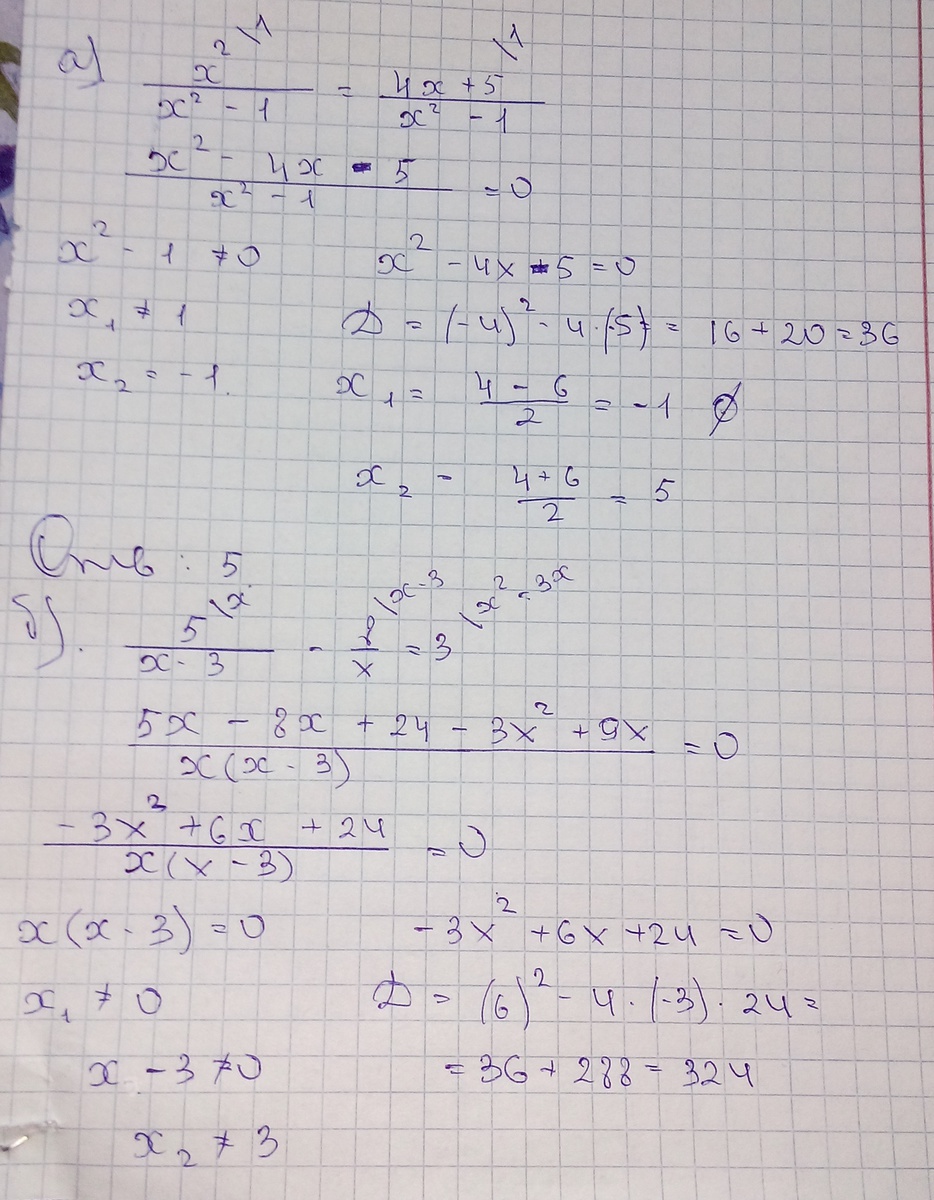 а) x² \1 / x² - 1 = 4x + 5 \1 / x² - 1
x² - 4x - 5 / x² - 1 = 0
x² - 1 ≠ 0    x² - 4x - 5 = 0
x₁ ≠ 1    D = (-4)² - 4·(-5) = 16 + 20 = 36
x₂ = -1.    x₁ = 4 - 6 / 2 = -1 ∅
x₂ = 4 + 6 / 2 = 5
Отв : 5.
б). 5 \x / x - 3 - 8 \x-3 / x = 3 \x² - 3x
5x - 8x + 24 - 3x² + 9x / x(x - 3) = 0
-3x² + 6x + 24 / x(x - 3) = 0
x(x - 3) = 0    -3x² + 6x + 24 = 0
x₁ ≠ 0    D = (6)² - 4·(-3)·24 =
x - 3 ≠ 0    = 36 + 288 = 324
x₂ ≠ 3